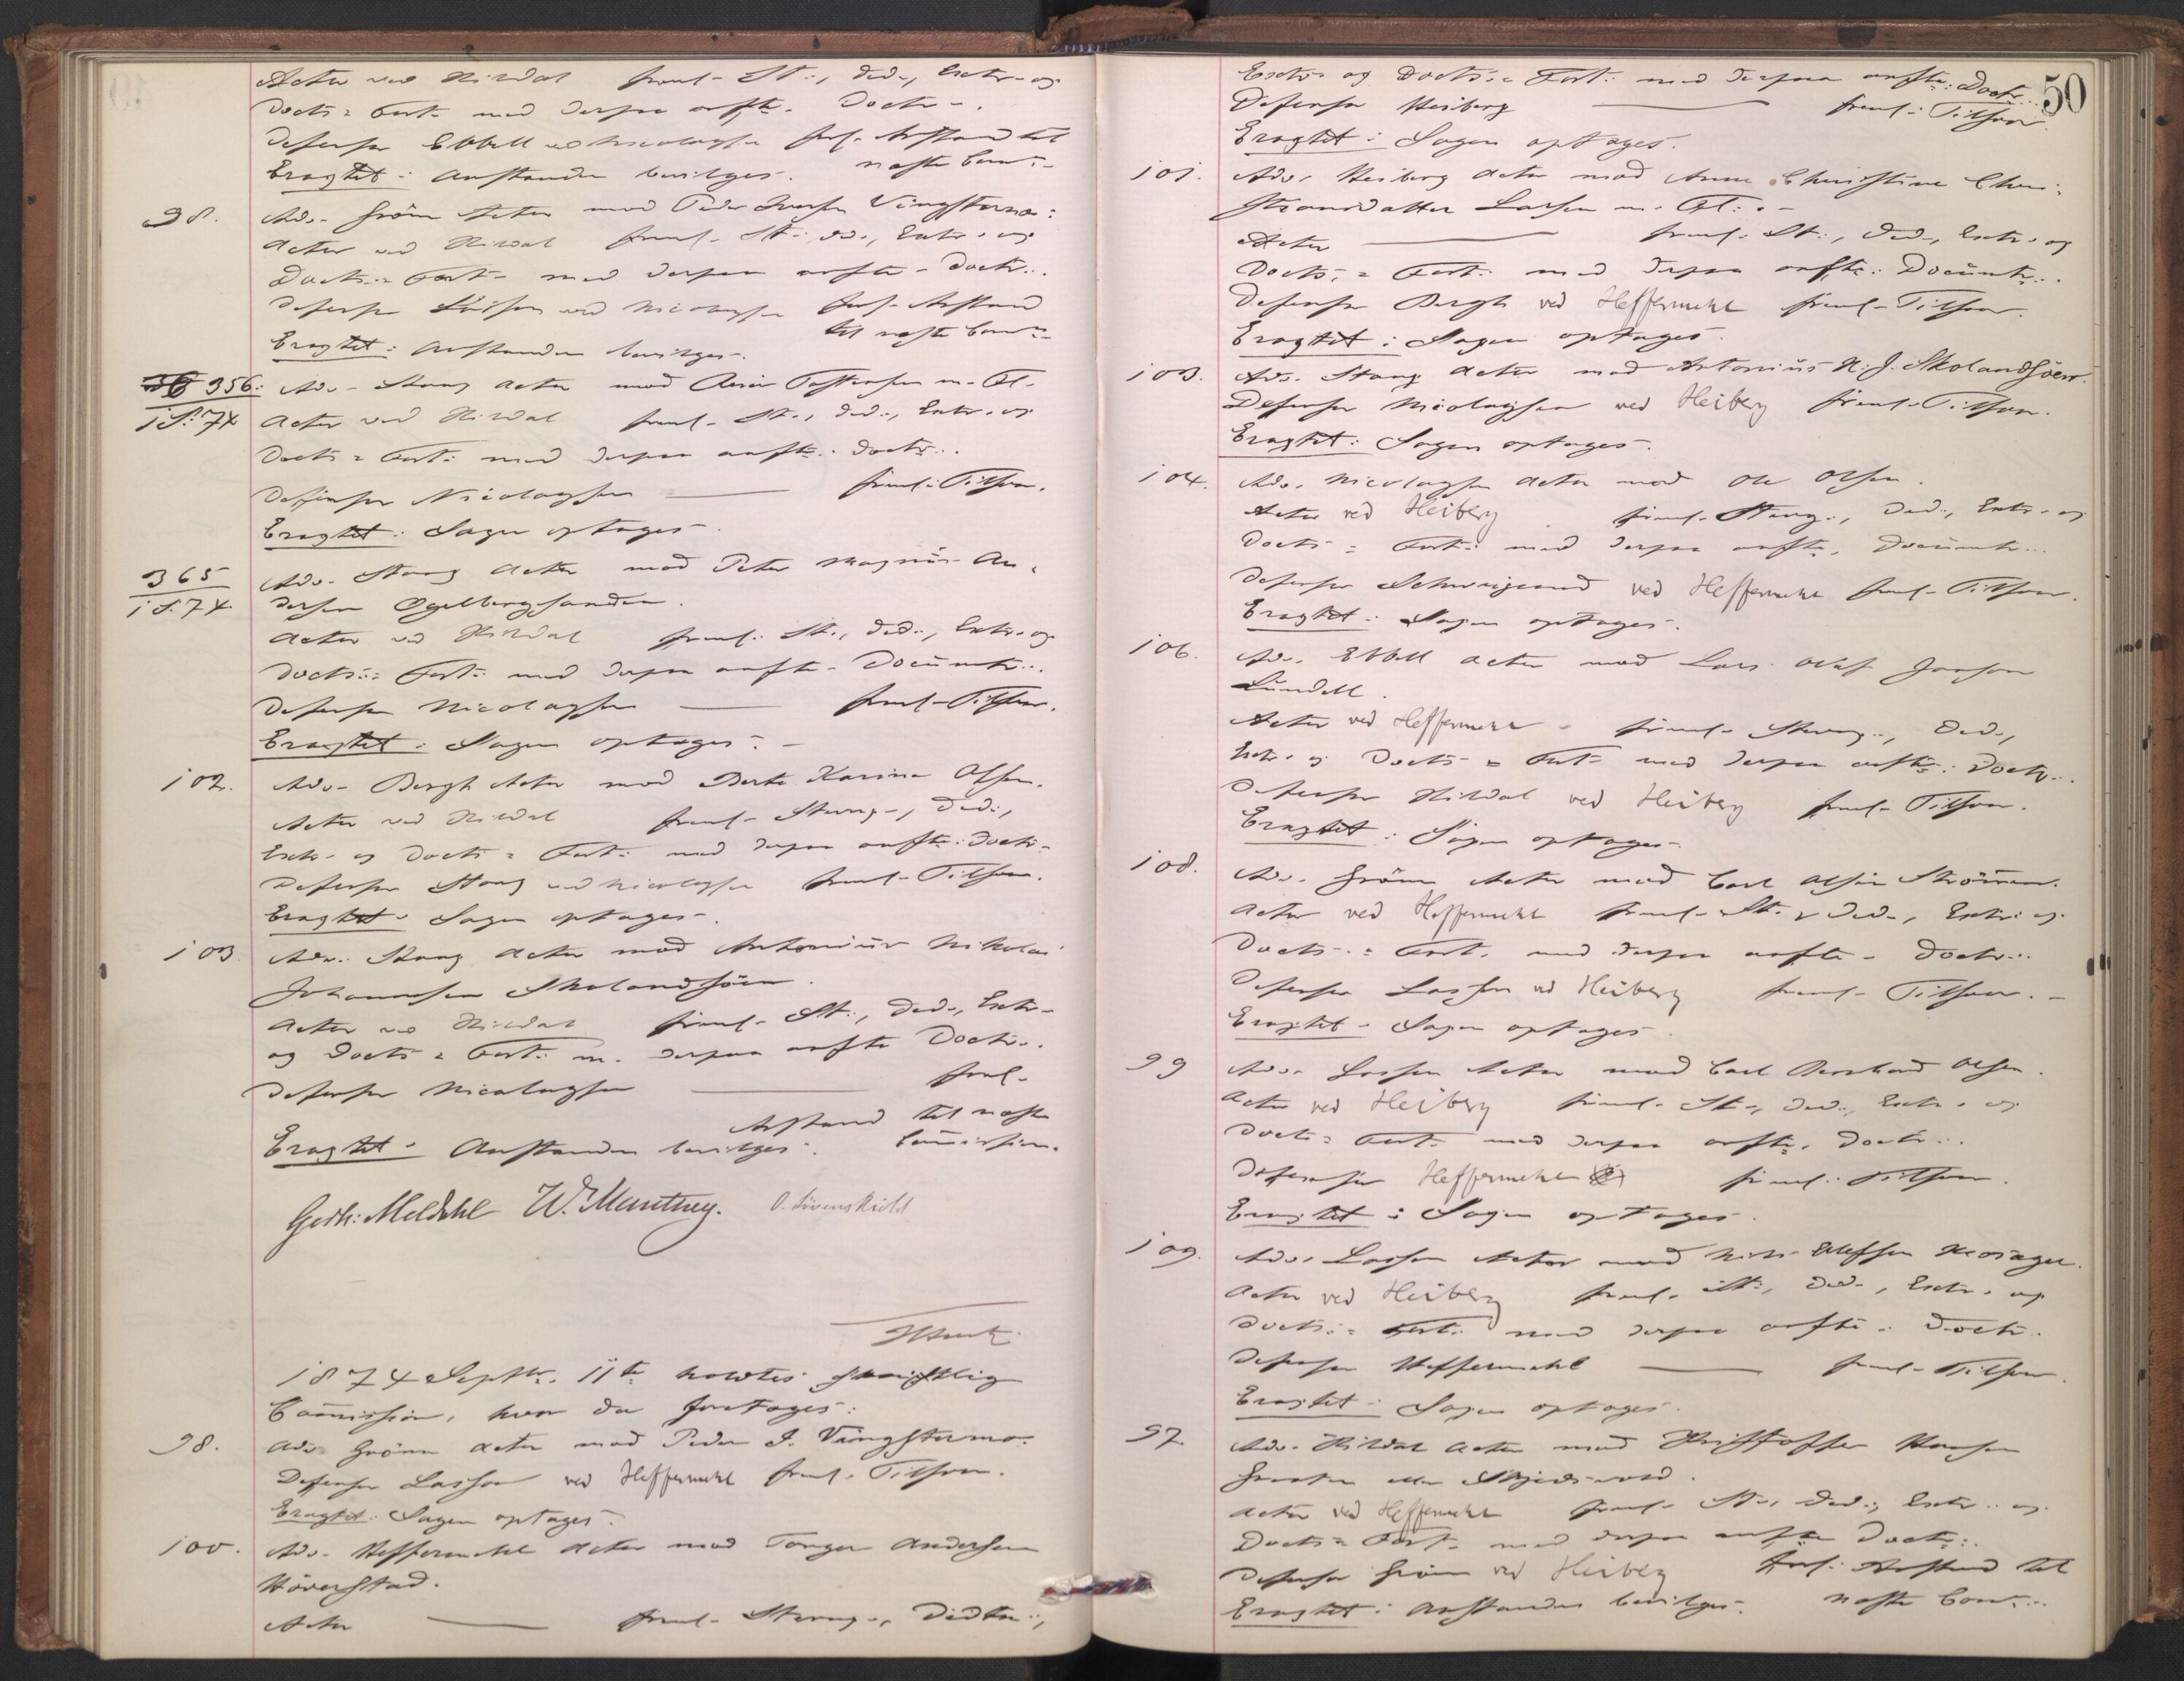 Actor ved Hirdal freml. St:, Ded., Extr. og
Docts: Fort: med derpaa anfte. Doctr.
Defensor Ebbell ved Nicolaysen forl. Anstand til
Eragtet: Anstanden bevilges. næste Comn.
98. Adv. Grönn Actor mod Peder Iversen Vingstermo:
Actor ved Hirdal freml. St:, Ded., Extr. og
Docts: Fort: med derpaa anfte. Doctr.
Defensor Lasson ved Nicolaysen forl. Anstand
Eragtet: Anstanden bevilges. til næste Comn.
356: Adv. Stang Actor mod m. Fl.
i S. 74 Actor ved Hirdal freml. St:, Ded., Extr. og
Docts: Fort: med derpaa anfte. Doctr.
Defensor Nicolaysen — freml. Tilsvar.
Eragtet: Sagen optages.
365 Adv. Stang Actor mod Peter Magnus An-
i S. 74. dersen Egelbergsanden.
Actor ved Hirdal freml. St:, Ded., Extr. og
Docts: Fort: med derpaa anfte. Documtr.
Defensor Nicolaysen — freml. Tilsvar.
Eragtet: Sagen optages.
102. Adv. Bergh Actor mod Berte Karine Olsen.
Actor ved Hirdal freml. Stevng., Ded.,
Extr. og Docts: Fort: med derpaa anfte. Doctr.
Defensor Stang ved Nicolaysen freml. Tilsvar.
Eragtet: Sagen optages.
103. Adv. Stang Actor mod Antonius Nikolai
Johannesen Skolandsöen.
Actor ved Hirdal freml. St:, Ded., Extr.
og Docts: Fort: m. derpaa anfte Doctr.
Defensor Nicolaysen — forl.
Anstand til næste
Eragtet: Anstanden bevilges. Commission.
Gerh: Meldahl W. Munthey. O. Lövenskiold
1874 Septbr. 11te holdtes skriftlig
Commission, hvor da foretages:
98. Adv. Grönn Actor mod Peder I. Vingstermo.
Defensor Lasson ved Heffermehl freml. Tilsvar.
Eragtet: Sagen optages.
100. Adv. Heffermehl Actor mod Torger Andersen
Höverstad.
Actor — freml. Stevng., Dedtn:,
50
Extr. og Docts: Fort: med derpaa anfte: Doctr.
Defensor Heiberg — freml. Tilsvar.
Eragtet: Sagen optages.
101. Adv. Heiberg Actor mod Anne Christine Chri-
stiansdatter Larsen m. Fl:
Actor — freml. St:, Ded., Extr. og
Docts: Fort: med derpaa anfte: Documtr.
Defensor Bergh ved Heffermehl freml. Tilsvar.
Eragtet: Sagen optages.
103. Adv. Stang Actor mod Antonius N. J. Skolandsöen.
Defensor Nicolaysen ved Heiberg freml. Tilsvar.
Eragtet: Sagen optages.
104. Adv. Nicolaysen Actor mod Ole Olsen.
Actor ved Heiberg freml. Stevng., Ded., Extr. og
Docts: Fort: med derpaa anfte. Documtr.
Defensor Schweigaard ved Heffermehl freml. Tilsvar.
Eragtet: Sagen optages.
106. Adv. Ebbell Actor mod Lars Olaf Jonson
Lundell.
Actor ved Heffermehl freml. Stevng., Ded.,
Extr. og Docts: Fort: med derpaa anfte: Doctr.
Defensor Hirdal ved Heiberg freml. Tilsvar.
Eragtet: Sagen optages.
108. Adv. Grönn Actor mod Carl Olsen Strömmen.
Actor ved Heffermehl freml. St:, Ded., Extr. og
Docts: Fort: med derpaa anfte. Doctr.
Defensor Lasson ved Heiberg freml. Tilsvar.
Eragtet: Sagen optages.
99 Adv. Lasson Actor mod Carl Bernhard Olsen.
Actor ved Heiberg freml. St:, Ded., Extr. og
Docts: Fort: med derpaa anfte. Doctr.
Defensor Heffermehl freml. Tilsvar.
Eragtet: Sagen optages.
109. Adv. Lasson Actor mod Nils Ellefsen
Actor ved Heiberg freml. St:, Ded., Extr. og
Docts: Fort: med derpaa anfte: Doctr.
Defensor Heffermehl — freml. Tilsvar.
Eragtet: Sagen optages.
97. Adv. Hirdal Actor mod Kristoffer Hansen
eller
Actor ved Heffermehl freml. St:, Ded., Extr. og
Docts: Fort: med derpaa anfte Doctr.
Defensor Grönn ved Heiberg forl. Anstand til
Eragtet: Anstanden bevilges. næste Comn.